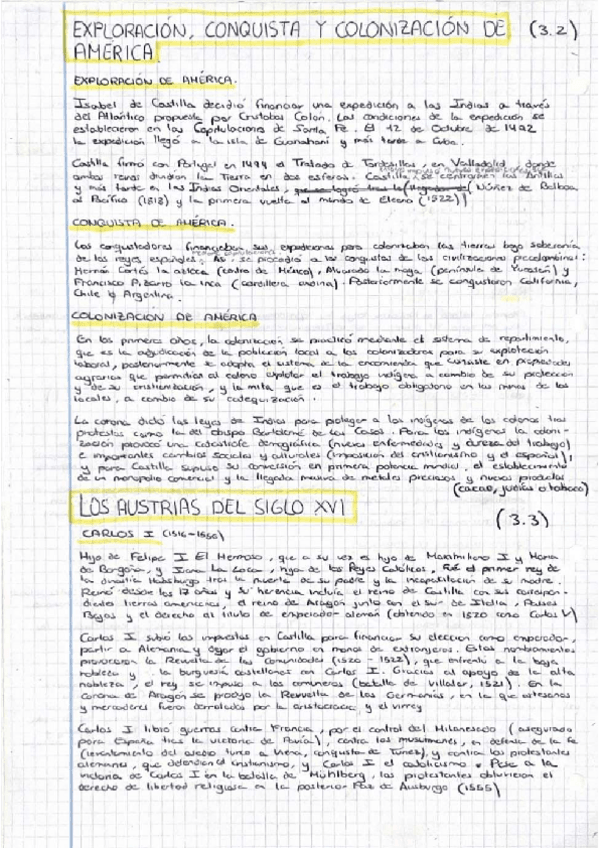 EXPLORACIÓN, CONQUISTA Y COLONIZACIÓN DE (3.2)
AMÉRICA.
EXPLORACIÓN DE AMÉRICA.
Isabel de Castilla decidió financiar una expedición a las Indias a través
del Atlántico propuesta por Cristobas Colón. Las condiciones de la expedición se
establecieron en las Capitulaciones de Santa Fe. El 12 de Octubre de 1492
la expedición llegó a la isla de Guanahaní y más tarde a Cuba.
Castilla firmó con Portugal en 1494 el Tratado de Tordesillas, en Valladolid, donde
ambos reinos dividían la Tierra en dos esferas. Castilla, se centraron las Antillas
y más tarde en las Indias Orientales, Núñez de Balboa
al Pacífico (1513) y la primera vuelta al mundo de Elcano (1522)
CONQUISTA DE AMÉRICA.
Los conquistadores financieban sus expediciones para colonizaban las tierras bajo soberanía
de los reyes españoles. Así se procedió a las conquistas de las civilizaciones precolombinas:
Hernán Cortés la azteca (centro de México), Alvarado la maya (península de Yucatán) y
Francisco Pizarro la inca (cordillera andina). Posteriormente se conquistaron California,
Chile y Argentina.
COLONIZACIÓN DE AMÉRICA
En los primeros años, la colonización se practicó mediante el sistema de repartimiento,
que es la adjudicación de la población local a los colonizadores para su explotación
laboral, posteriormente se adopta el sistema de la encomienda que consiste en propiedades
agrarias que permitían al colono explotar el trabajo indígena a cambio de su protección
y de su cristianización, y la mita, que es el trabajo obligatorio en las minas de los
locales, a cambio de su catequización.
La corona dictó las leyes de Indias para proteger a los indígenas de los colonos tras
protestas como la del obispo Bartolomé de las Casas. Para los indígenas la coloni-
zación provocó una catástrofe demográfica (nuevas enfermedades y dureza del trabajo)
e importantes cambios sociales y culturales (imposición del cristianismo y el español),
y para Castilla supuso su conversión en primera potencia mundial, el establecimiento
de un monopolio comercial y la llegada masiva de metales preciosos y nuevos productos
(cacao, judías o tabaco)
LOS AUSTRIAS DEL SIGLO XVI (3.3)
CARLOS I (1516-1556)
Hijo de Felipe I El Hermoso, que a su vez es hijo de Maximiliano I y María
de Borgoña, y Juana La Loca, hija de los Reyes Católicos, fue el primer rey de
la dinastía Habsburgo tras la muerte de su padre y la incapacitación de su madre.
Reinó desde los 17 años y su herencia incluía el reino de Castilla con sus correspon-
dientes tierras americanas, el reino de Aragón junto con el sur de Italia, Países
Bajos y el derecho al título de emperador alemán (obtenido en 1520 como Carlos V)
Carlos I subió los impuestos en Castilla para financiar su elección como emperador,
partir a Alemania y dejar el gobierno en manos de extranjeros. Estos nombramientos
provocaron la Revuelta de las Comunidades (1520 - 1522), que enfrentó a la baja
nobleza y la burguesía castellanos con Carlos I. Gracias al apoyo de la alta
nobleza, el rey se impuso a los comuneros (batalla de Villalar, 1521). En la
Corona de Aragón se produjo la Revuelta de las Germanías, en la que artesanos
y mercaderes fueron derrotados por la aristocracia y el virrey
Carlos I libró guerras contra Francia, por el control del Milanesado (asegurado
para España tras la victoria de Pavía), contra los musulmanes, en defensa de la fe
(levantamiento del asedio turco a Viena, conquista de Túnez) y contra los protestantes
alemanes, que defendían el cristianismo, y Carlos I el catolicismo. Pese a la
victoria de Carlos I en la batalla de Mühlberg, los protestantes obtuvieron el
derecho de libertad religiosa en la posterior Paz de Ausburgo (1555)